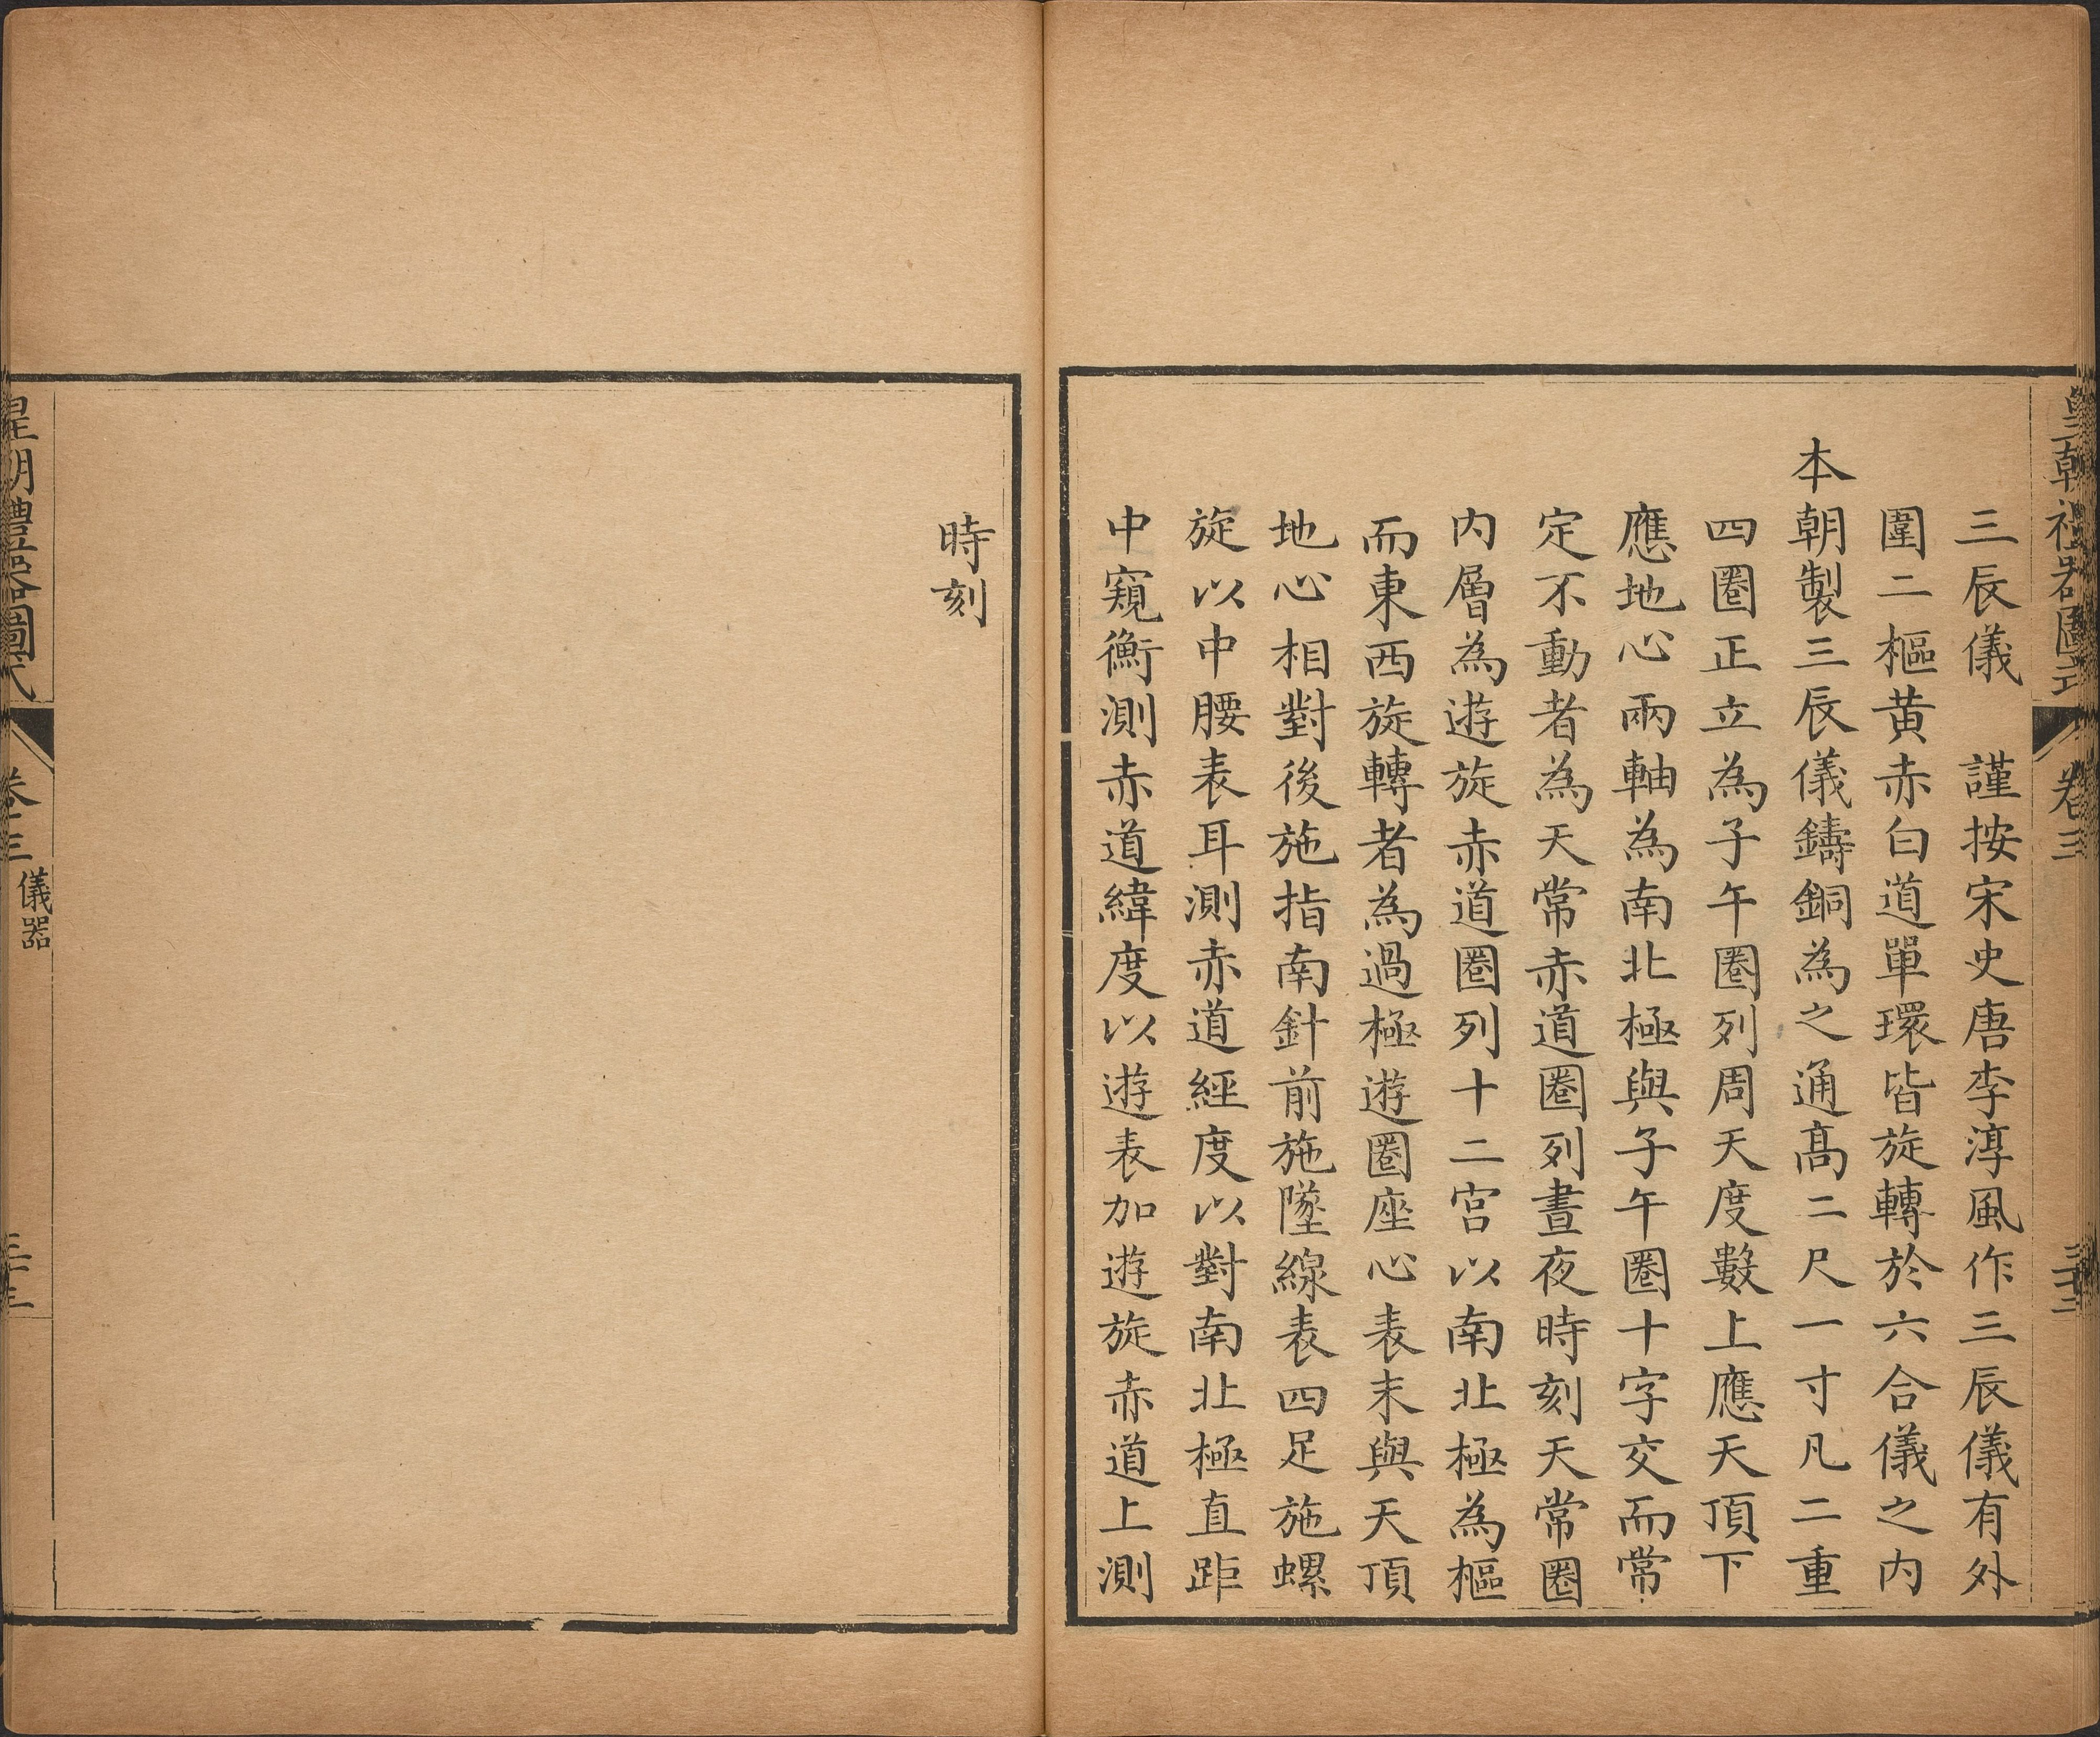 皇朝禮器圖式 卷三 三十二
三辰儀　謹按宋史唐李淳風作三辰儀有外
圍二樞黃赤白道單環皆旋轉於六合儀之内
本朝製三辰儀鑄銅為之通髙二尺一寸凡二重
四圈正立為子午圈列周天度數上應天頂下
應地心兩軸為南北極與子午圈十字交而常
定不動者為天常赤道圈列晝夜時刻天常圈
内層為遊旋赤道圈列十二宫以南北極為樞
而東西旋轉者為過極遊圈座心表末與天頂
地心相對後施指南針前施墜線表四足施螺
旋以中腰表耳測赤道經度以對南北極直距
中窺衡測赤道緯度以遊表加遊旋赤道上測
時刻
皇朝禮器圖式 卷三 儀器